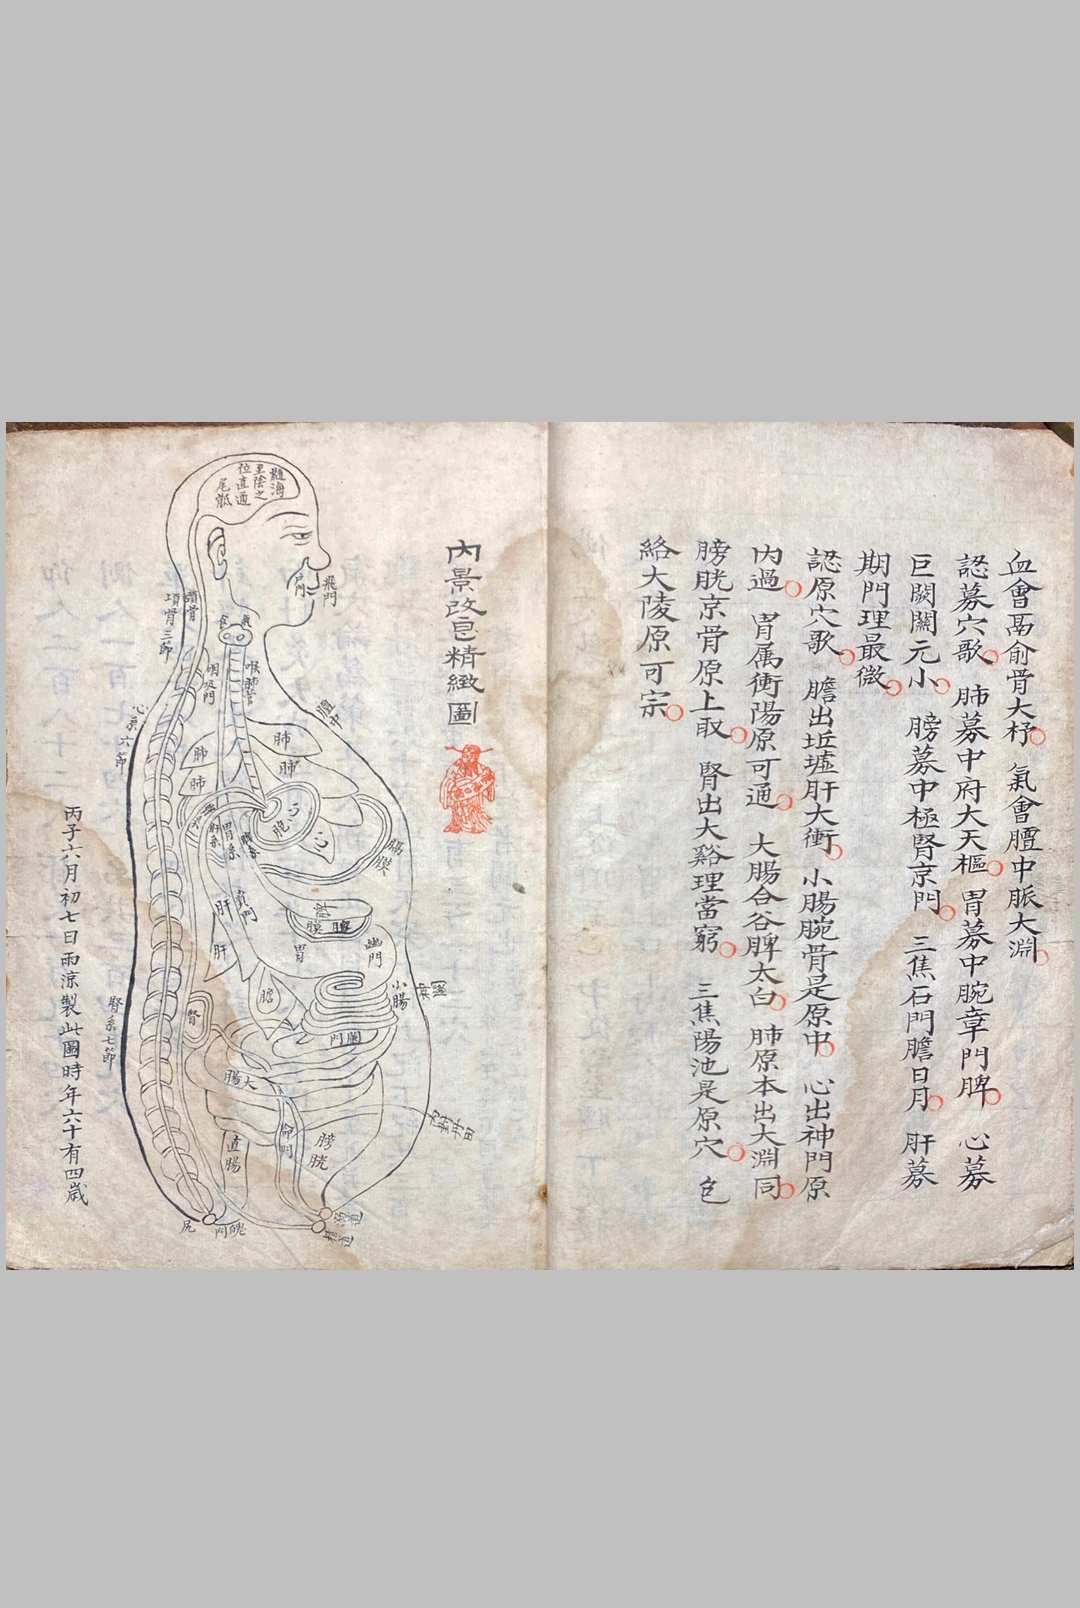 血會鬲俞骨大杼 氣會膻中脈大淵
認募穴歌 肺募中府大天樞 胃募中腕章門脾 心募
巨闕關元小 膀募中極腎京門 三焦石門膽日月 肝募
期門理最微
認原穴歌 膽出坵墟肝大衝 小腸腕骨是原中 心出神門原
內過 胃属衝陽原可通 大腸合谷脾太白 肺原本出大淵同
膀胱京骨原上取 腎出大谿理當窮 三焦陽池是原穴 包
絡大陵原可宗
內景改正精緻圖
髓海
至陰之
位直通
尾骶
飛門
戶門
氣
食
項骨三節
喉
咽
吸門
膻中
心系六節
肺
肺
肺
肺
胞
心
膈膜
胃系
肝
賁門
肝
脾
膜
胃
幽門
膽
小腸
闌門
腎
腎系七節
大腸
直腸
命門
膀胱
魄門
尻
丙子六月初七日雨涼製此圖時年六十有四歲